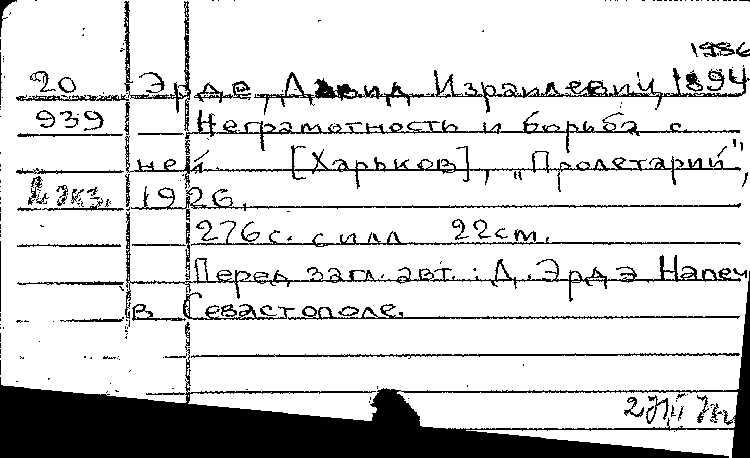 1986
20 Эрде, Давид Израилевич, 1894
939 Неграмотность и борьба с
ней [Харьков], „Пролетарий",
2 экз. 1926.
276 с. с илл 22 см.
Перед загл. авт.: Д. Эрдэ Напеч
в Севастополе.